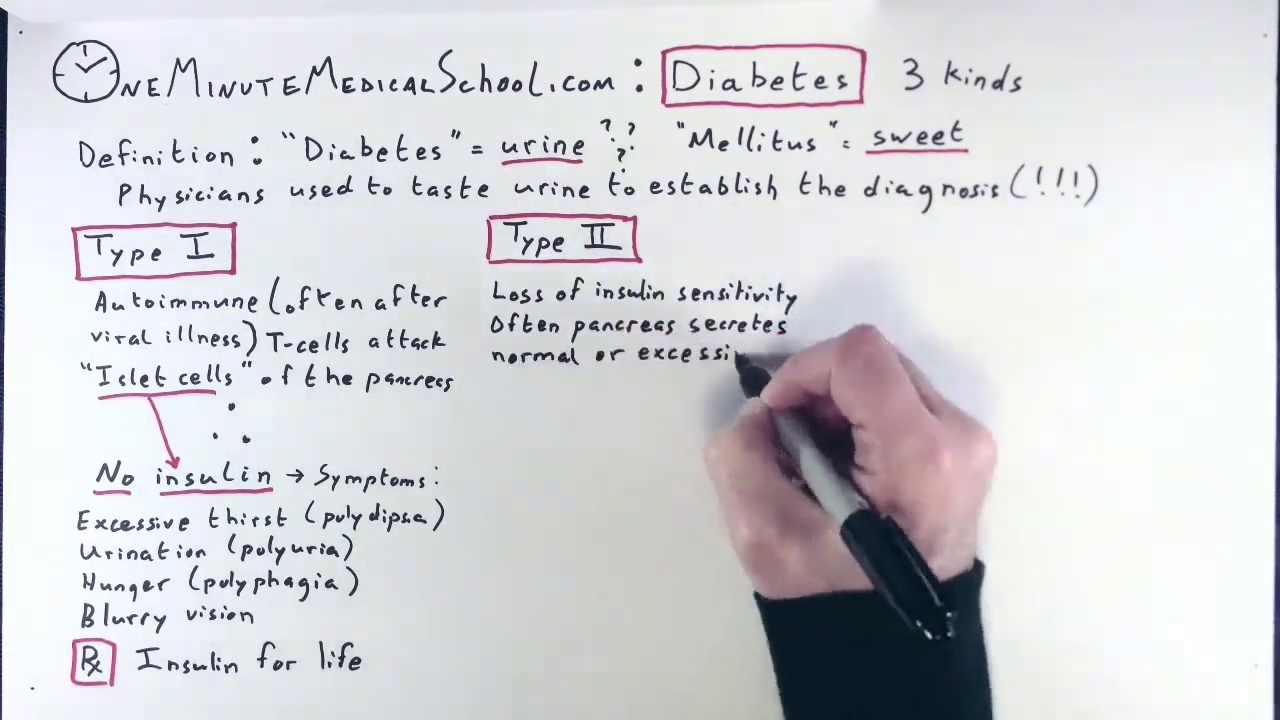 ONEMINUTEMEDICALSCHOOL.COM : Diabetes 3 kinds
Definition : "Diabetes" = urine ??? "Mellitus" = sweet
Physicians used to taste urine to establish the diagnosis (!!!)
Type I
Autoimmune (often after
viral illness) T-cells attack
"Islet cells" of the pancreas
No insulin → Symptoms:
Excessive thirst (polydipsia)
Urination (polyuria)
Hunger (polyphagia)
Blurry vision
Rx Insulin for life
Type II
Loss of insulin sensitivity
Often pancreas secretes
normal or excessi